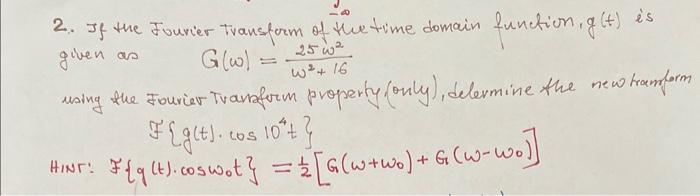 -∞
2. If the Fourier Transform of the time domain function, g(t) is
given as G(ω) = 25ω² / ω² + 16
using the Fourier Transform property (only), determine the new transform
F{g(t). cos 10⁴t}
HINT: F{g(t). cosω₀t} = ½[G(ω+ω₀) + G(ω-ω₀)]